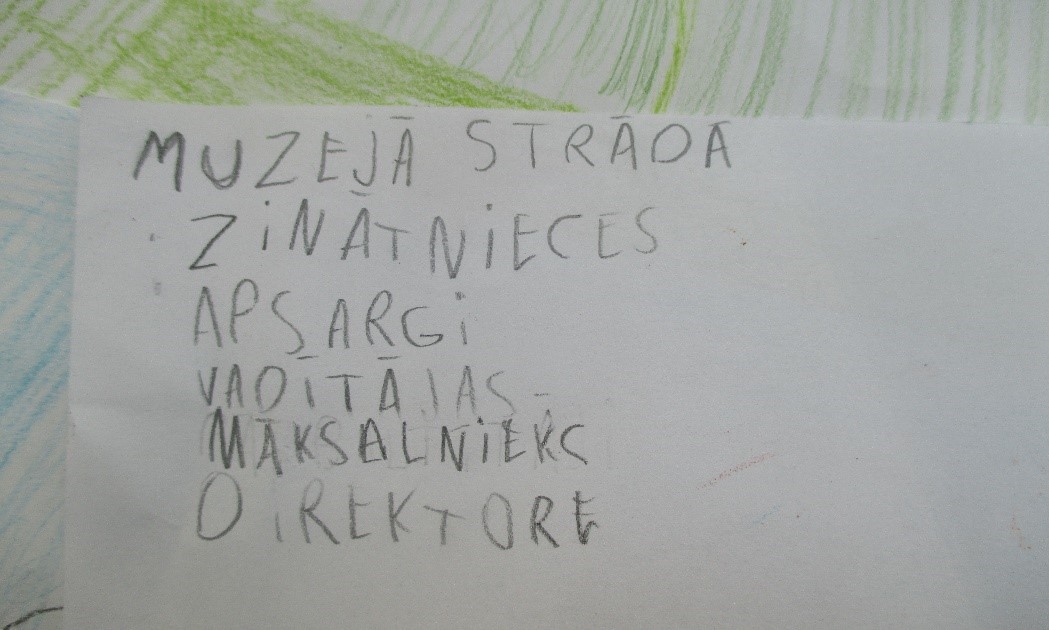 MUZEJĀ STRĀDA
ZiNĀTNiECES
APSARGi
VADĪTĀJAS
MĀKSALNiEKS
DiREKTORE